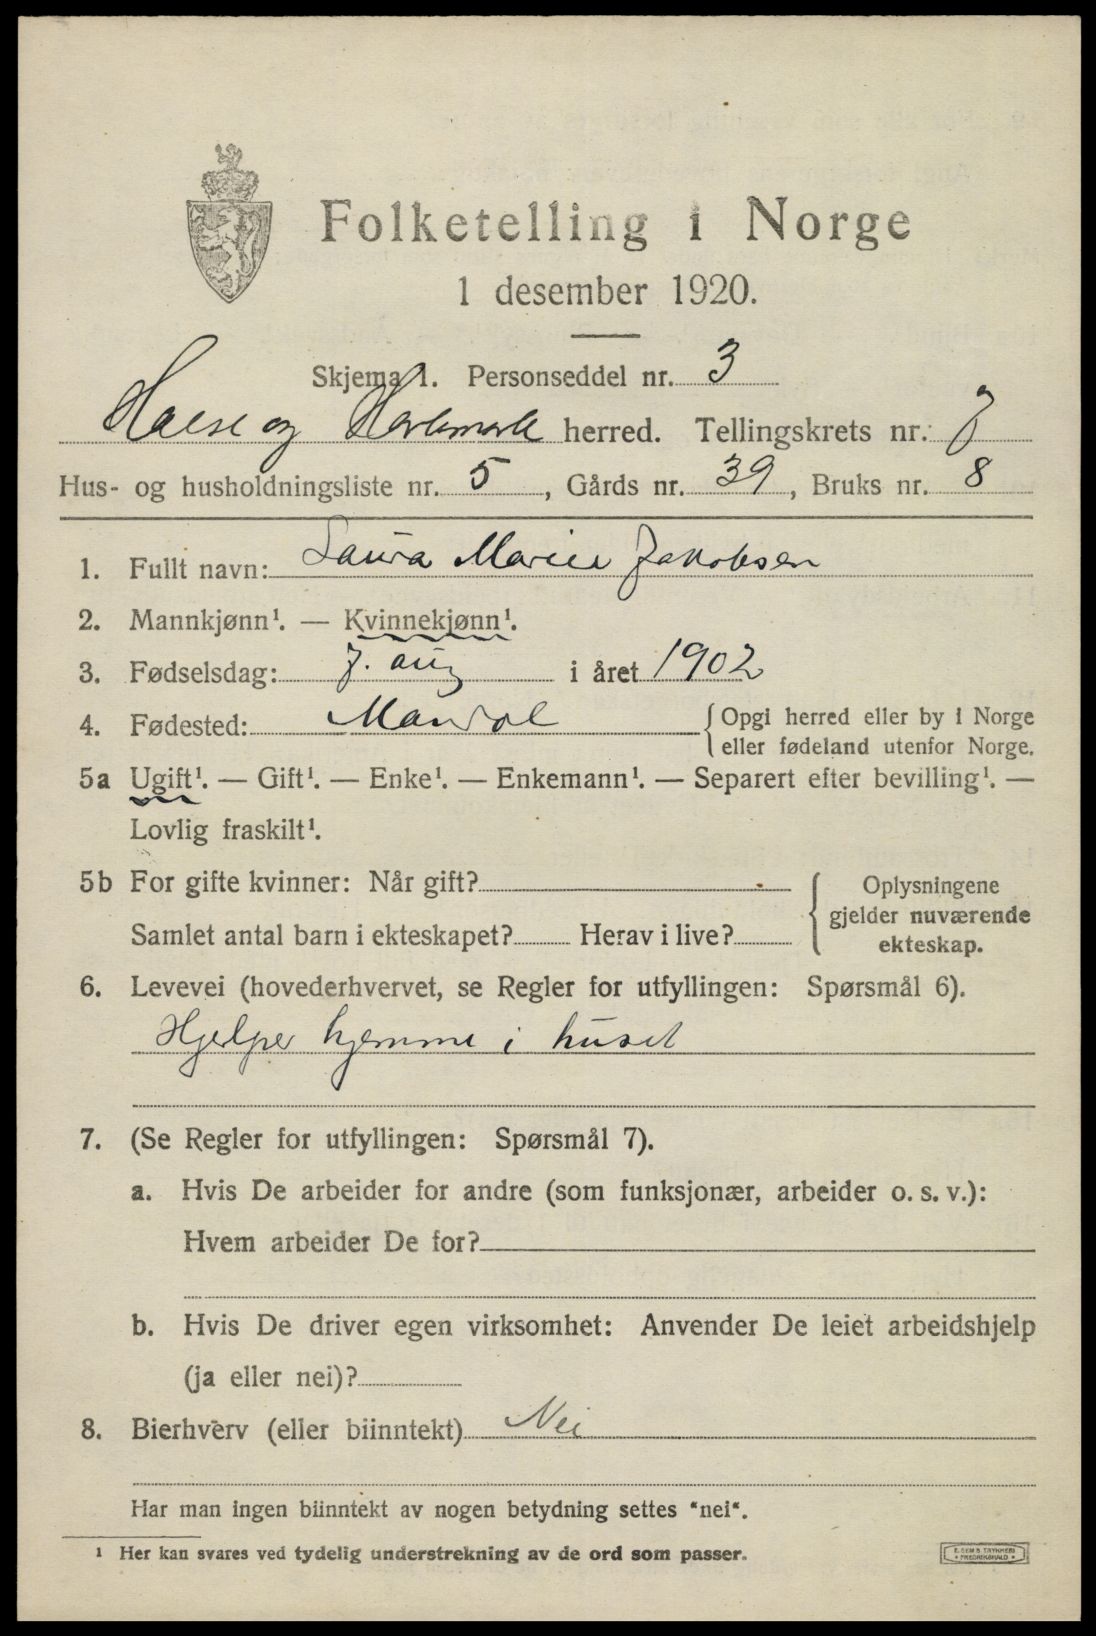 Folketelling i Norge
1 desember 1920.
Skjema 1. Personseddel nr. 3
Halse og Harkmark herred. Tellingskrets nr. 7
Hus- og husholdningsliste nr. 5, Gårds nr. 39, Bruks nr. 8
1. Fullt navn: Laura Marie Jakobsen
2. Mannkjønn¹. — Kvinnekjønn¹.
3. Fødselsdag: 7. aug i året 1902
4. Fødested: Mandal {Opgi herred eller by i Norge
eller fødeland utenfor Norge.
5a Ugift¹. — Gift¹. — Enke¹. — Enkemann¹. — Separert efter bevilling¹. —
Lovlig fraskilt¹.
5b For gifte kvinner: Når gift? { Oplysningene
gjelder nuværende
Samlet antal barn i ekteskapet? Herav i live? ekteskap.
6. Levevei (hovederhvervet, se Regler for utfyllingen: Spørsmål 6).
Hjelper hjemme i huset
7. (Se Regler for utfyllingen: Spørsmål 7).
a. Hvis De arbeider for andre (som funksjonær, arbeider o. s. v.):
Hvem arbeider De for?
b. Hvis De driver egen virksomhet: Anvender De leiet arbeidshjelp
(ja eller nei)?
8. Bierhverv (eller biinntekt) Nei
Har man ingen biinntekt av nogen betydning settes "nei".
¹ Her kan svares ved tydelig understrekning av de ord som passer.
E. SEM'S TRYKKERI
• FREDRIKSHALD •